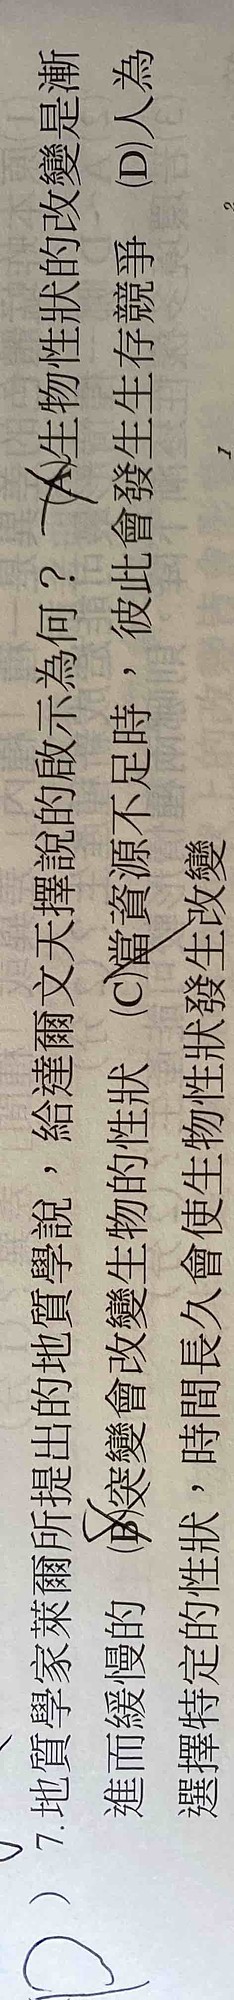 ) 7.地質學家萊爾所提出的地質學說，給達爾文天擇說的啟示為何？ (A)生物性狀的改變是漸
進而緩慢的 (B)突變會改變生物的性狀 (C)當資源不足時，彼此會發生生存競爭 (D)人為
選擇特定的性狀，時間長久會使生物性狀發生改變